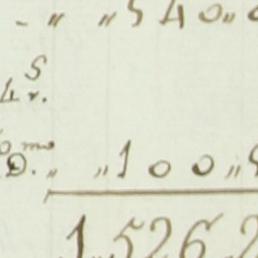 - „ „ 540„
S
4 r.
mo
D. „ „100„
1.526.2